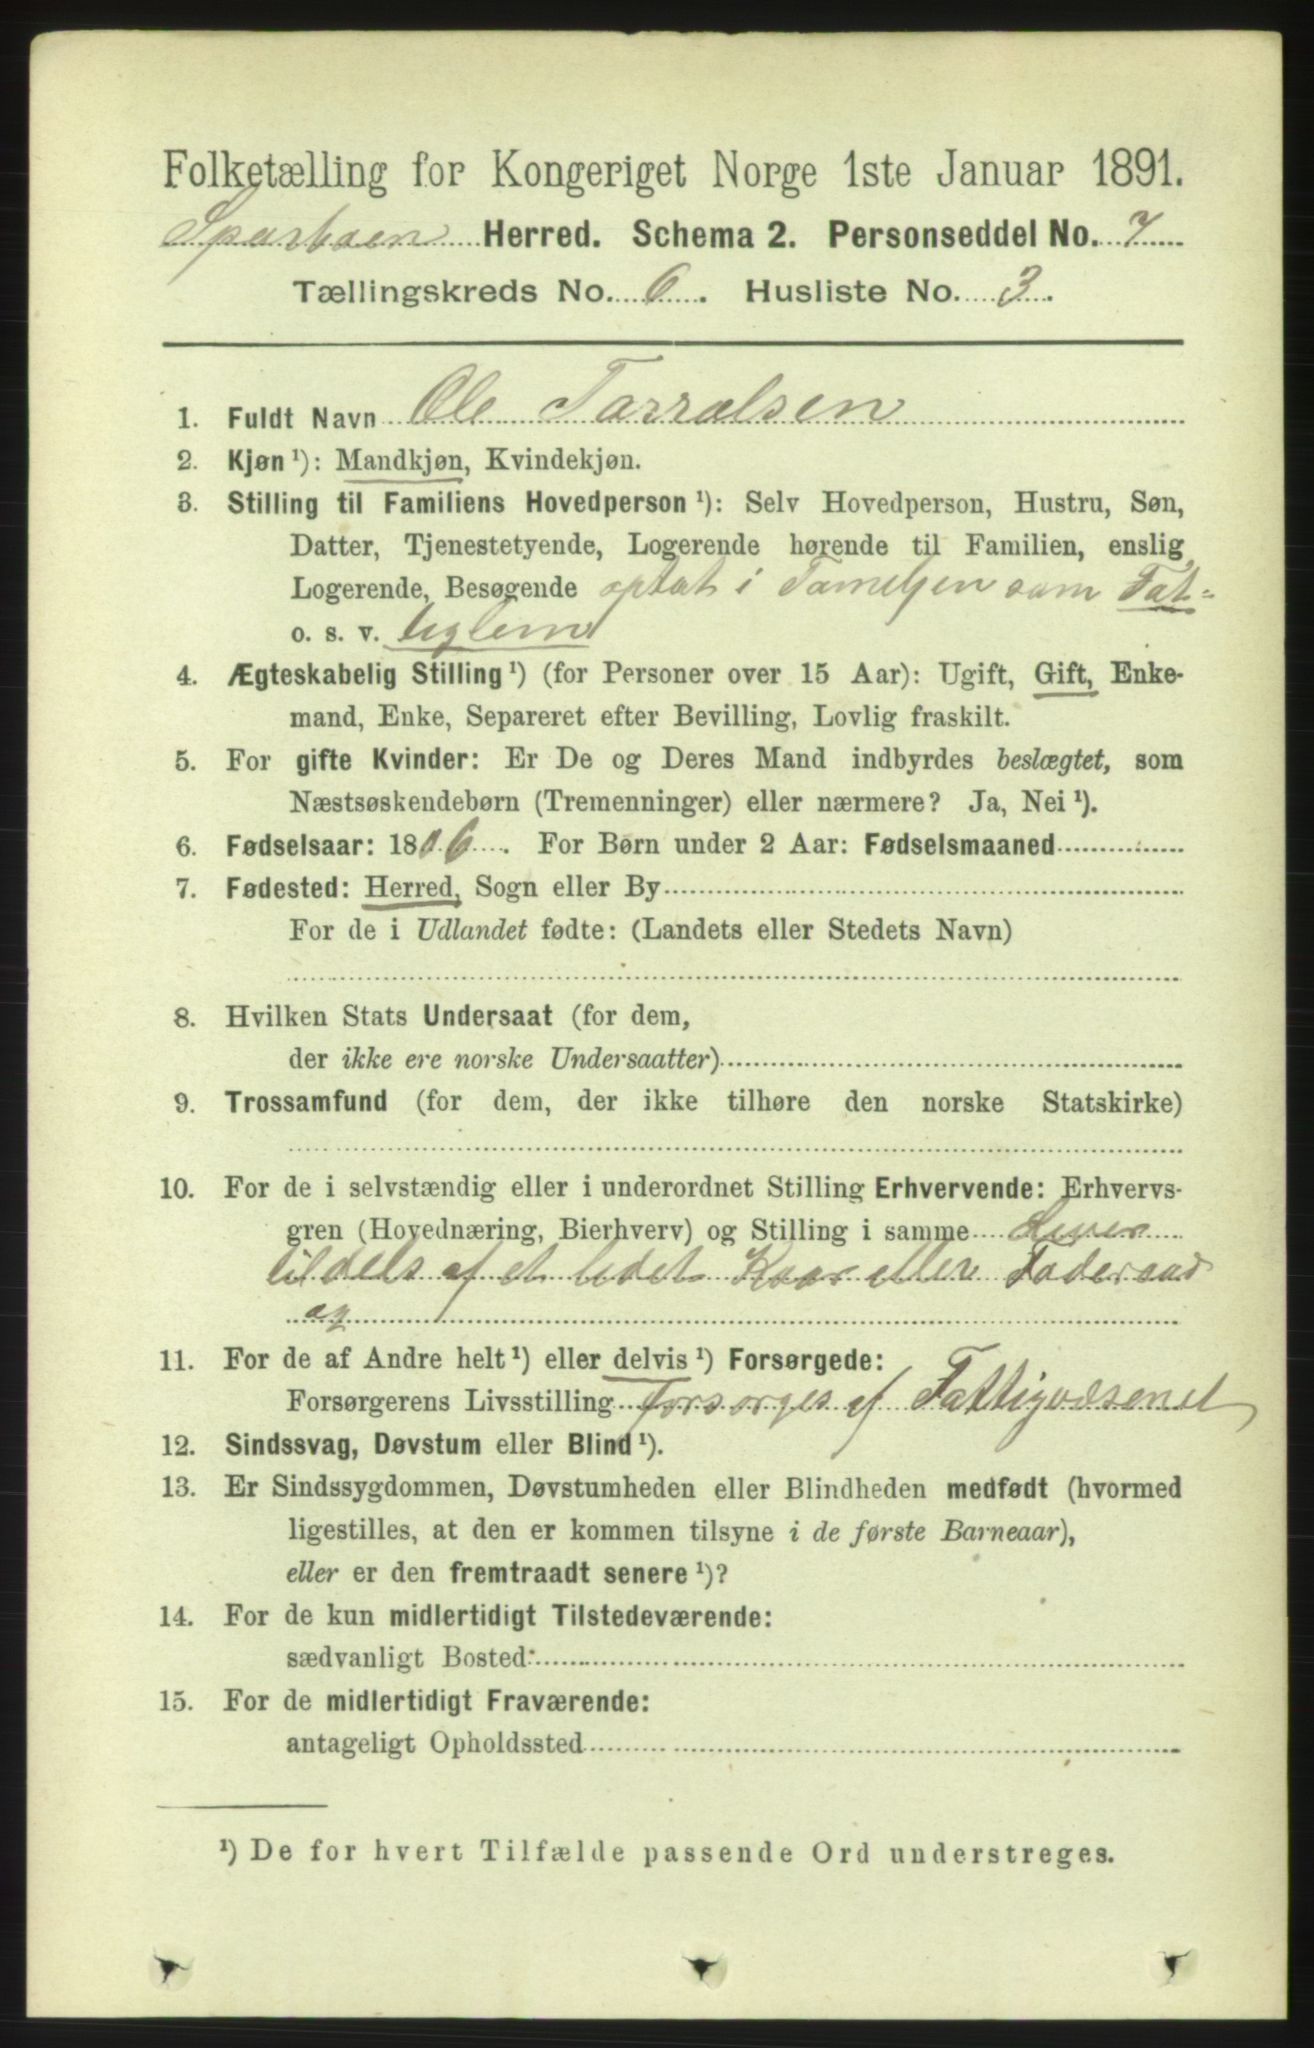 Folketælling for Kongeriget Norge 1ste Januar 1891.
Sparboen Herred. Schema 2. Personseddel No. 7
Tællingskreds No. 6. Husliste No. 3.
1. Fuldt Navn Ole Tarralsen
2. Kjøn ¹): Mandkjøn, Kvindekjøn.
3. Stilling til Familiens Hovedperson ¹): Selv Hovedperson, Hustru, Søn,
Datter, Tjenestetyende, Logerende hørende til Familien, enslig
Logerende, Besøgende optat i Familjen som Fat-
o. s. v. tiglem
4. Ægteskabelig Stilling ¹) (for Personer over 15 Aar): Ugift, Gift, Enke-
mand, Enke, Separeret efter Bevilling, Lovlig fraskilt.
5. For gifte Kvinder: Er De og Deres Mand indbyrdes beslægtet, som
Næstsøskendebørn (Tremenninger) eller nærmere? Ja, Nei ¹).
6. Fødselsaar: 1806. For Børn under 2 Aar: Fødselsmaaned
7. Fødested: Herred, Sogn eller By
For de i Udlandet fødte: (Landets eller Stedets Navn)
8. Hvilken Stats Undersaat (for dem,
der ikke ere norske Undersaatter)
9. Trossamfund (for dem, der ikke tilhøre den norske Statskirke)
10. For de i selvstændig eller i underordnet Stilling Erhvervende: Erhvervs-
gren (Hovednæring, Bierhverv) og Stilling i samme Lever
tildels af et lidet Kaar eller Foderaad
og
11. For de af Andre helt ¹) eller delvis ¹) Forsørgede:
Forsørgerens Livsstilling Forsørges af Fattigvæsenet
12. Sindssvag, Døvstum eller Blind ¹).
13. Er Sindssygdommen, Døvstumheden eller Blindheden medfødt (hvormed
ligestilles, at den er kommen tilsyne i de første Barneaar),
eller er den fremtraadt senere ¹)?
14. For de kun midlertidigt Tilstedeværende:
sædvanligt Bosted:
15. For de midlertidigt Fraværende:
antageligt Opholdssted
¹) De for hvert Tilfælde passende Ord understreges.